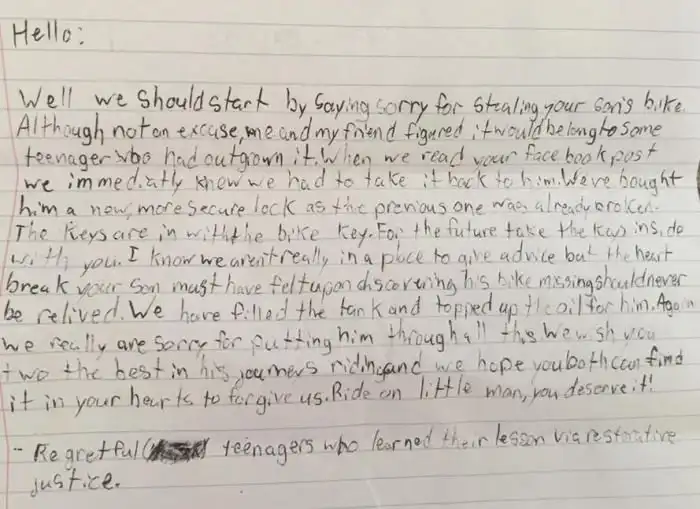 Hello:
Well we should start by saying sorry for stealing your son's bike.
Although not an excuse, me and my friend figured it would belong to some
teenager who had outgrown it. When we read your facebook post
we immediatly knew we had to take it back to him. Weve bought
him a new, more secure lock as the previous one was already broken.
The keys are in with the bike key. For the future take the keys inside
with you. I know we arent really in a place to give advice but the heart
break your son must have felt upon discovering his bike missing should never
be relived. We have filled the tank and topped up the oil for him. Again
we really are sorry for putting him through all this. We wish you
two the best in his journeys riding and we hope you both can find
it in your hearts to forgive us. Ride on little man, you deserve it!
- Regretful teenagers who learned their lesson via restorative
justice.